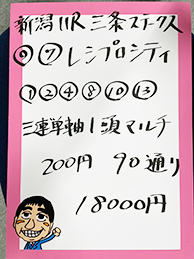 新潟11R 三条ステークス
⑨⑦レシプロシティ
①②④⑧⑩⑬
三連単軸1頭マルチ
200円 90通り
18000円